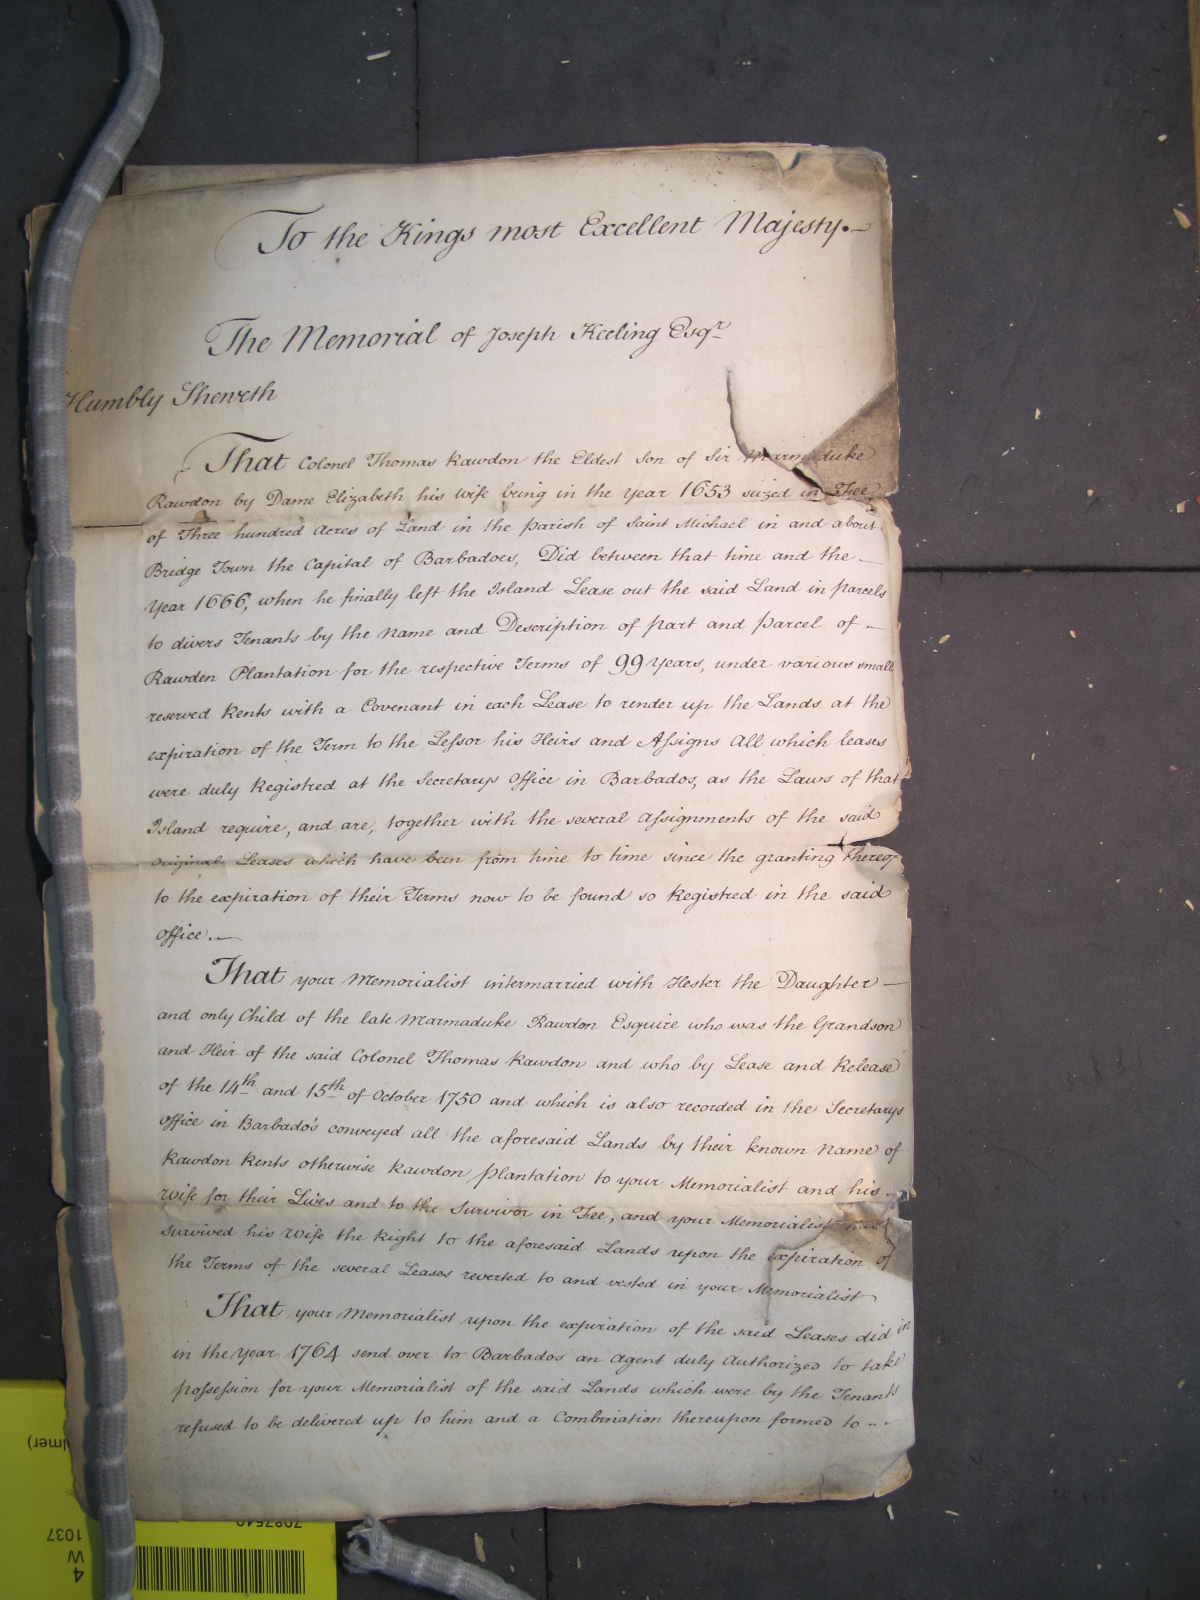 To the Kings most Excellent Majesty.
The Memorial of Joseph Keeling Esqr.
Humbly Sheweth
That Colonel Thomas Rawdon the Eldest Son of Sir Marmaduke
Rawdon by Dame Elizabeth his wife being in the year 1653 seized in Fee
of Three hundred Acres of Land in the Parish of Saint Michael in and about
Bridge Town the Capital of Barbadoes, Did between that time and the
Year 1666, when he finally left the Island Lease out the said Land in Parcels
to divers Tenants by the Name and Description of part and Parcel of
Rawden Plantation for the respective Terms of 99 Years, under various small
reserved Rents with a Covenant in each Lease to render up the Lands at the
expiration of the Term to the Lessor his Heirs and Assigns All which leases
were duly Registred at the Secretarys Office in Barbados, as the Laws of that
Island require, and are, together with the several Assignments of the said
Original Leases which have been from time to time since the granting thereof
to the expiration of their Terms now to be found so Registred in the said
Office.
That your Memorialist intermarried with Hester the Daughter
and only Child of the late Marmaduke Rawdon Esquire who was the Grandson
and Heir of the said Colonel Thomas Rawdon and who by Lease and Release
of the 14th and 15th of October 1750 and which is also recorded in the Secretarys
Office in Barbados conveyed all the aforesaid Lands by their known Name of
Rawdon Rents otherwise Rawdon Plantation to your Memorialist and his
Wife for their Lives and to the Survivor in Fee, and your Memorialist
survived his Wife the Right to the aforesaid Lands upon the expiration of
the Terms of the several Leases reverted to and vested in your Memorialist
That your Memorialist upon the expiration of the said Leases did in
in the Year 1764 send over to Barbados an Agent duly Authorized to take
possession for your Memorialist of the said Lands which were by the Tenants
refused to be delivered up to him and a Combination thereupon formed to
lmer)
4
W
1037
7087540